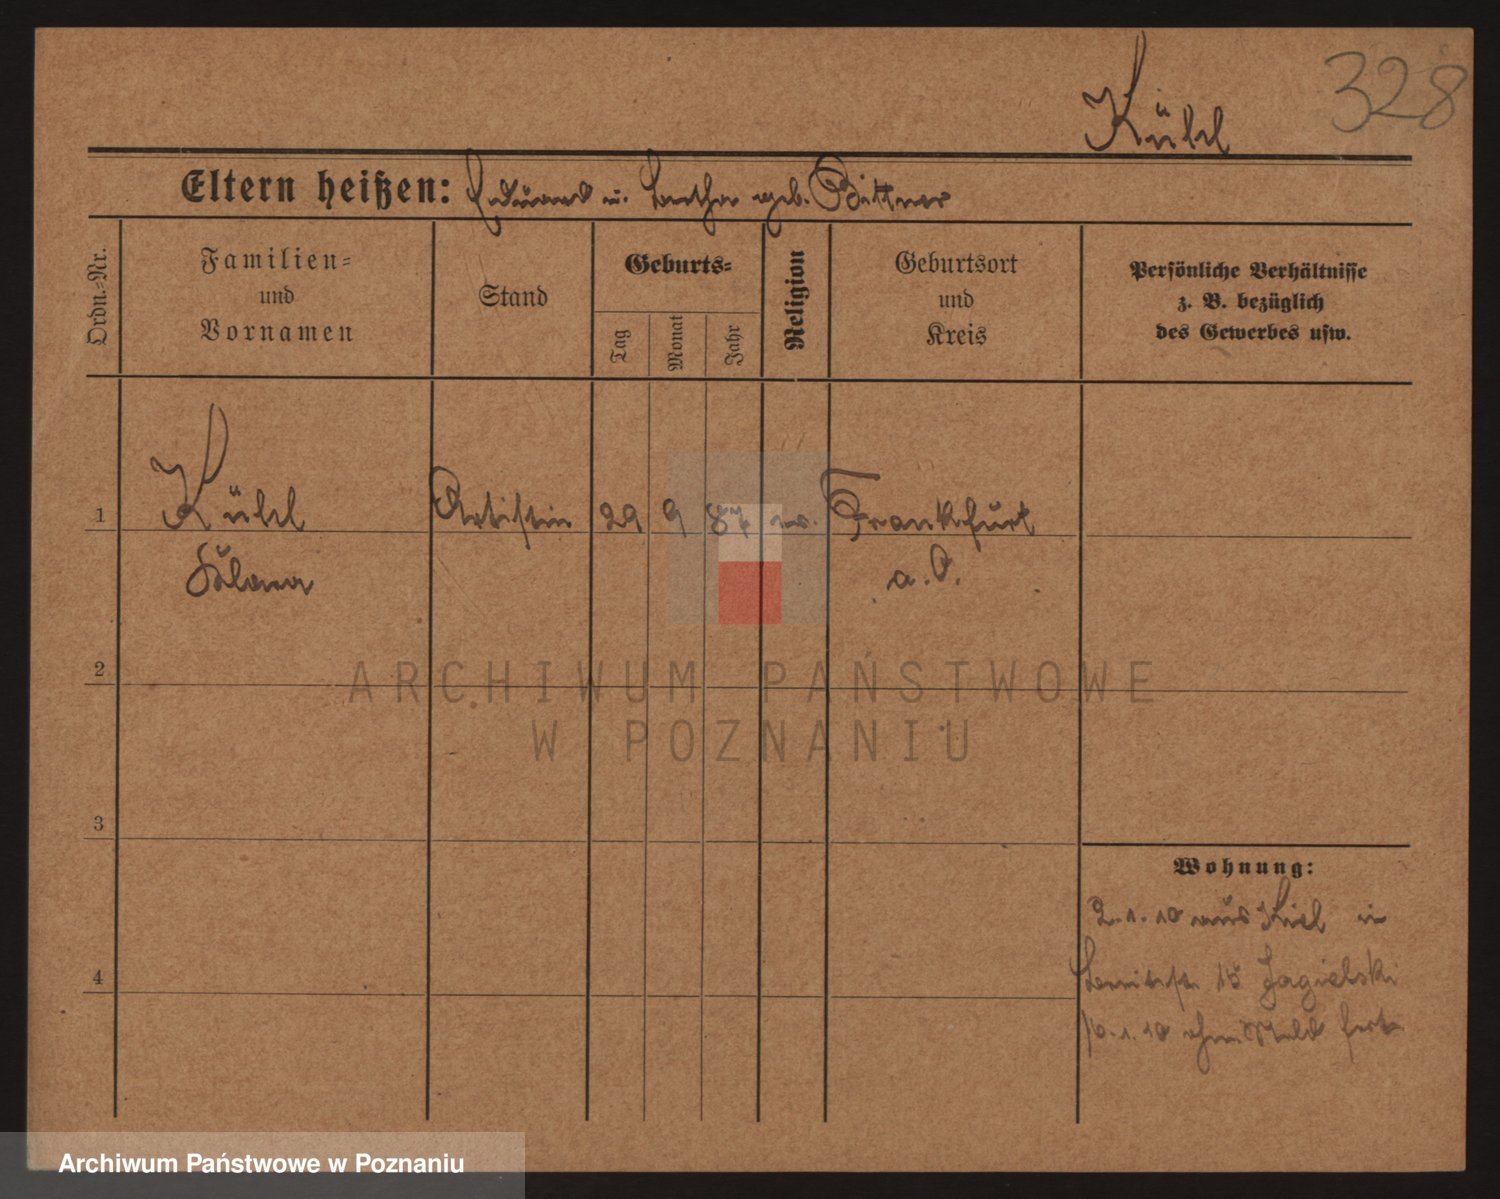 328
Kühl
Eltern heißen: Eduard u. Bertha geb. Bittner
Ordn.-Nr.
Familien=
und
Vornamen
Stand
Geburts=
Tag
Monat
Jahr
Religion
Geburtsort
und
Kreis
Persönliche Verhältnisse
z. B. bezüglich
des Gewerbes usw.
1 Kühl Artistin 29 9 87 ev. Frankfurt
Klara a. O.
2
3
4
Wohnung:
2.1.10 aus Kiel in
15 Jagielski
.1.10 ohne Meld fort
ARCHIWUM PAŃSTWOWE
W POZNANIU
Archiwum Państwowe w Poznaniu